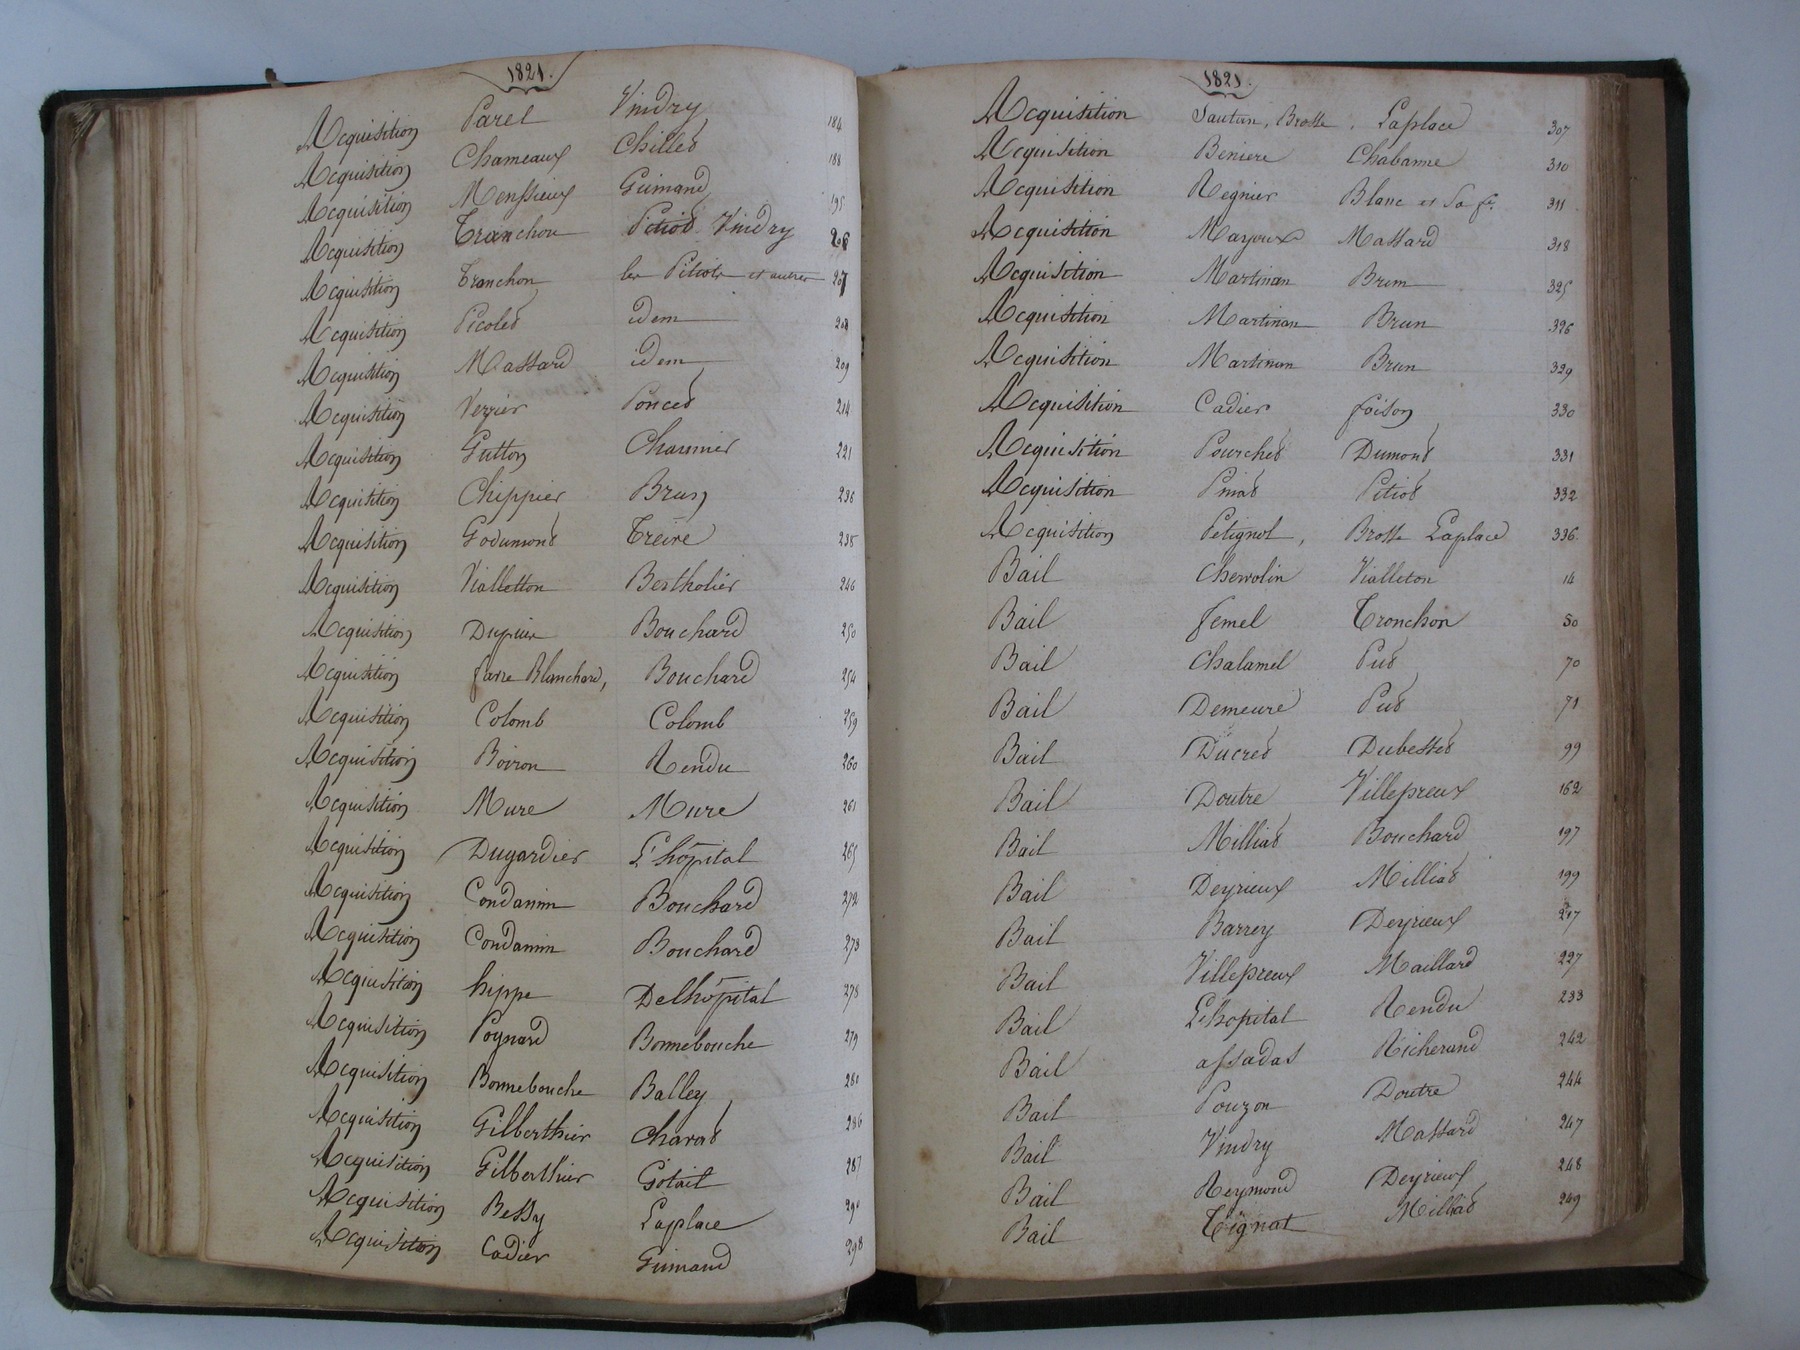 1821.
Acquisition Parel Vindry 184
Acquisition Chameaux Chillet 188
Acquisition Menssieux Guimand 195
Acquisition Tranchon Pitiot Vindry 206
Acquisition Tranchon les Pitiots et autres 207
Acquisition Picolet idem 208
Acquisition Massard idem 209
Acquisition Verrier Poncet 214
Acquisition Gutton Charmier 221
Acquisition Chippier Brun 236
Acquisition Godumont Treive 238
Acquisition Vialletton Bertholier 246
Acquisition Dupuier Bouchard 250
Acquisition farre Blanchard, Bouchard 254
Acquisition Colomb Colomb 259
Acquisition Boiron Rendu 260
Acquisition Mure Mure 261
Acquisition Dugardier L'hôpital 265
Acquisition Condamin Bouchard 272
Acquisition Condamin Bouchard 273
Acquisition hippe Delhôpital 278
Acquisition Poynard Bonnebouche 279
Acquisition Bonnebouche Balley 281
Acquisition Gilberthier charat 286
Acquisition Gilberthier Gotail 287
Acquisition Bessy Laplace 290
Acquisition Cadier Guimand 298
1821.
Acquisition Brosse, Laplace 307
Acquisition Beniere Chabanne 310
Acquisition Regnier Blanc et Sa fe. 311
Acquisition Mayoux Massard 318
Acquisition Martinan Brun 325
Acquisition Martinan Brun 326
Acquisition Martinan Brun 329
Acquisition Cadier foison 330
Acquisition Pourchet Dumont 331
Acquisition Pinat Pitiot 332
Acquisition Petignot, Brosse Laplace 336
Bail Chevrolin Vialleton 14
Bail femel Tronchon 50
Bail Chalamel Put 70
Bail Demeure Put 71
Bail Ducret Dubesset 99
Bail Doutre Villepreux 162
Bail Milliat Bouchard 197
Bail Deyrieux Milliat 199
Bail Barrey Deyrieux 217
Bail Villepreux Maillard 227
Bail L'hopital Rendu 233
Bail assadas Richerand 242
Bail Pouzon Doutre 244
Bail Vindry Massard 247
Bail Reymond Deyrieux 248
Bail Tignat Milliat 249